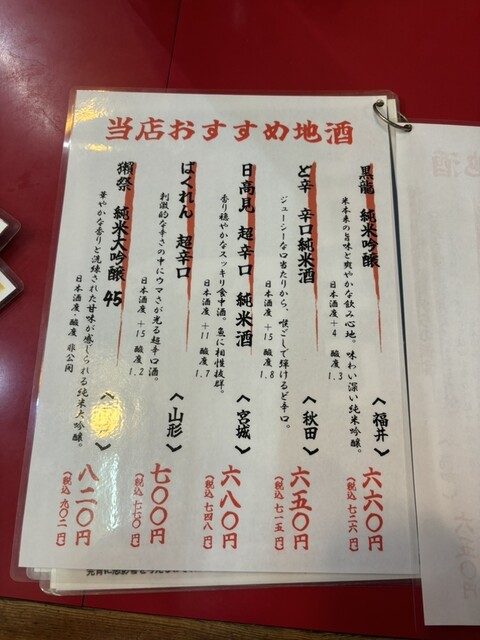 当店おすすめ地酒
黒龍 純米吟醸
米本来の旨味と爽やかな飲み心地。味わい深い純米吟醸。
日本酒度+4 酸度1.3
〈福井〉
六六〇円
(税込 七二六円)
ど辛 辛口純米酒
ジューシーな口当たりから、喉ごしで弾けるど辛口。
日本酒度+15 酸度1.8
〈秋田〉
六五〇円
(税込 七一五円)
日高見 超辛口 純米酒
香り穏やかなスッキリ食中酒。魚に相性抜群。
日本酒度+11 酸度1.7
〈宮城〉
六八〇円
(税込 七四八円)
ばくれん 超辛口
刺激的な辛さの中にウマさが光る超辛口酒。
日本酒度+15 酸度1.2
〈山形〉
七〇〇円
(税込 七七〇円)
獺祭 純米大吟醸45
華やかな香りと洗練された甘味が感じられる純米大吟醸。
日本酒度・酸度 非公開
八二〇円
(税込 九〇二円)
地酒